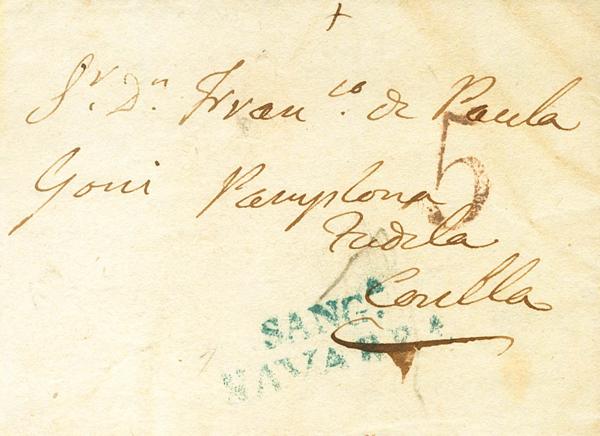 Sr. Dn. Franco. de Paula
5
Goñi Pamplona
Tudela
Corella
SANGA.
NAVARRA